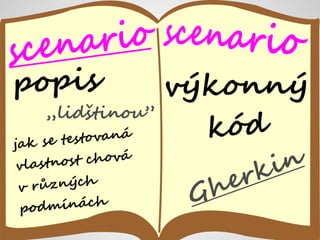 scenario
popis
„lidštinou”
jak se testovaná
vlastnost chová
v různých
podmínách
scenario
výkonný
kód
Gherkin